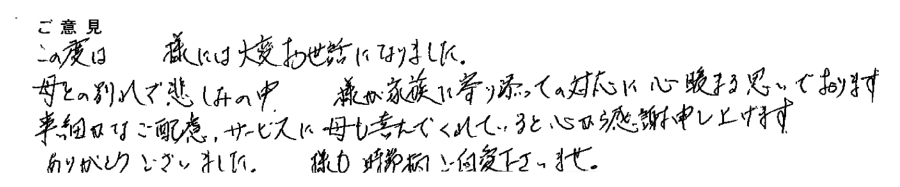 ご意見
この度は 様には大変お世話になりました。
母との別れで悲しみの中 様が家族に寄り添っての対応に心暖まる思いでおります
事細かなご配慮、サービスに母も喜んでくれていると心から感謝申し上げます
ありがとうございました。 様も時節柄ご自愛下さいませ。